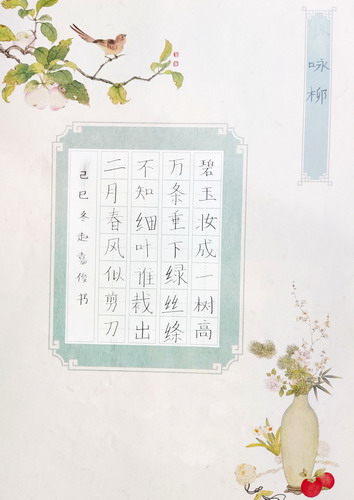 咏柳
碧玉妆成一树高
万条垂下绿丝绦
不知细叶谁裁出
二月春风似剪刀
己巳冬赵喜俊书